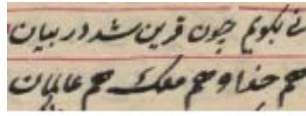 نی بگویم چون قرین شد در بیان
هم خدا و هم ملک هم عالمان